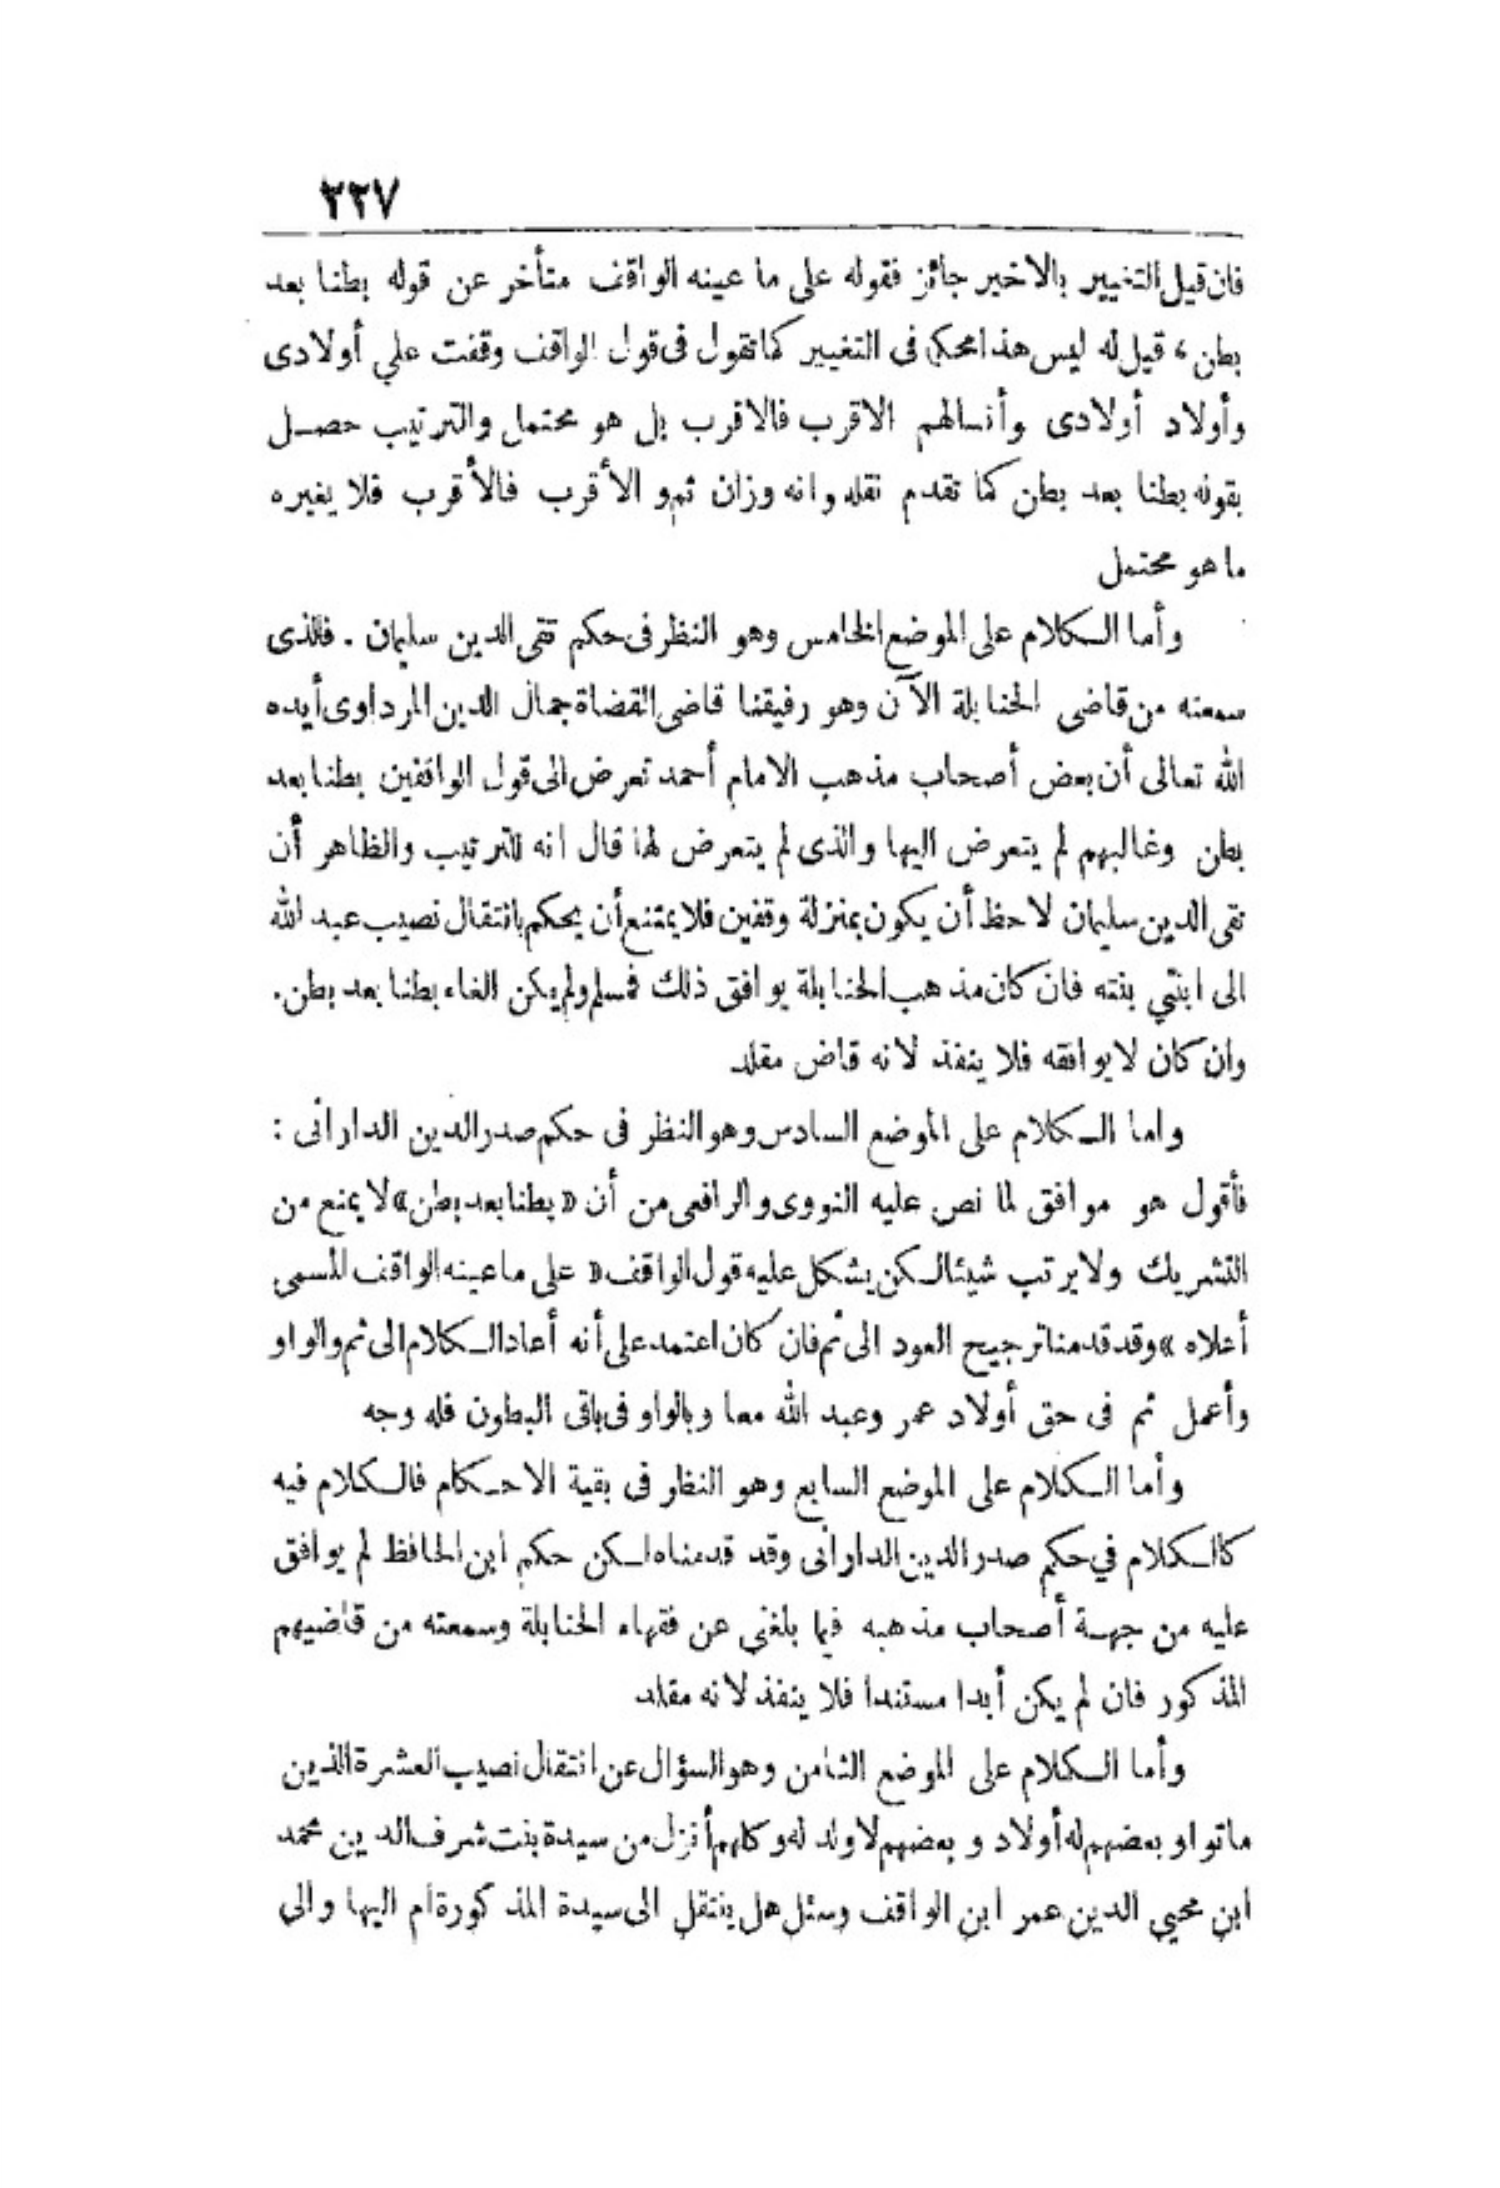 ٢٢٧
فان قيل التغيير بالاخير جائز فقوله على ما عينه الواقف متأخر عن قوله بطنا بعد
بطن، قيل له ليس هذا محكم فى التغيير كما تقول فى قول الواقف وقفت علي أولادى
وأولاد أولادى وأنسالهم الاقرب فالاقرب بل هو محتمل والترتيب حصـل
بقوله بطنا بعد بطن كما تقدم نقله وانه وزان ثم و الأقرب فالأقرب فلا يغيره
ما هو محتمل
وأما الـكلام على الموضع الخامس وهو النظر فى حكم تقى الدين سليمان . فالذى
سمعته من قاضى الحنابلة الآن وهو رفيقنا قاضى القضاة جمال الدين المرداوى أيده
الله تعالى أن بعض أصحاب مذهب الامام أحمد تعرض الى قول الواقفين بطنا بعد
بطن وغالبهم لم يتعرض اليها والذى لم يتعرض لها قال انه للترتيب والظاهر أن
تقى الدين سليمان لاحظ أن يكون بمنزلة وقفين فلا يمتنع أن يحكم بانتقال نصيب عبد الله
الى ابنتي بنته فان كان مذهب الحنابلة يوافق ذلك فمسلم ولم يكن الغاء بطنا بعد بطن.
وان كان لا يوافقه فلا ينفذ لانه قاض مقلد
واما الـكلام على الموضع السادس وهو النظر فى حكم صدر الدين الدارانى :
فأقول هو موافق لما نص عليه النووى والرافعى من أن «بطنا بعد بطن» لا يمنع من
التشريك ولا يرتب شيئا لـكن يشكل عليه قول الواقف « على ما عينه الواقف المسمى
أعلاه » وقد قدمنا ترجيح العود الى ثم فان كان اعتمد على أنه أعاد الـكلام الى ثم والواو
وأعمل ثم فى حق أولاد عمر وعبد الله معا وبالواو فى باقى البطون فله وجه
وأما الـكلام على الموضع السابع وهو النظر فى بقية الاحـكام فالـكلام فيه
كالـكلام في حكم صدر الدين الدارانى وقد قدمناه لـكن حكم ابن الحافظ لم يوافق
عليه من جهـة أصحاب مذهبه فيما بلغنى عن فقهاء الحنابلة وسمعته من قاضيهم
المذكور فان لم يكن أبدا مستندا فلا ينفذ لانه مقلد
وأما الـكلام على الموضع الثامن وهو السؤال عن انتقال نصيب العشرة الذين
ماتوا و بعضهم له أولاد و بعضهم لا ولد له وكلهم أنزل من سيدة بنت شرف الدين محمد
ابن محيي الدين عمر ابن الواقف وسئل هل ينتقل الى سيدة المذكورة أم اليها والى